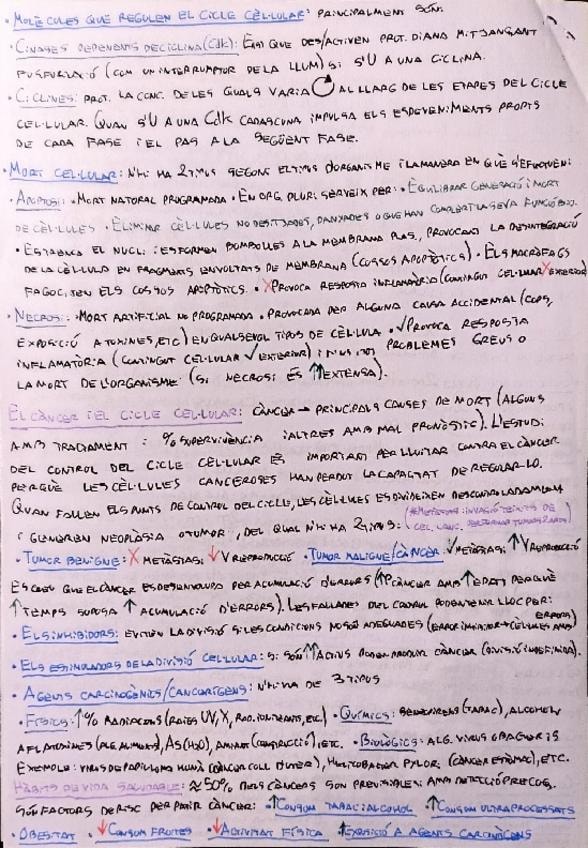 • MOLÈCULES QUE REGULEN EL CICLE CÈL·LULAR: PRINCIPALMENT SÓN:
• CINASES DEPENENTS DE CICLINA (Cdk): ENZ QUE DES/ACTIVEN PROT. DIANA MITJANÇANT
FOSFORILACIÓ (COM UN INTERRUPTOR DE LA LLUM) SI S'U A UNA CICLINA.
• CICLINES: PROT. LA CONC. DE LES QUALS VARIA AL LLARG DE LES ETAPES DEL CICLE
CEL·LULAR. QUAN S'U A UNA Cdk CADASCUNA IMPULSA ELS ESDEVENIMENTS PROPIS
DE CADA FASE I EL PAS A LA SEGÜENT FASE.
• MORT CEL·LULAR: N'HI HA 2 TIPUS SEGONS EL TIPUS D'ORGANISME I LA MANERA EN QUÈ S'EFECTUEN:
• APOPTOSI: • MORT NATURAL PROGRAMADA • EN ORG. PLURI. SERVEIX PER: • EQUILIBRAR GENERACIÓ I MORT
DE CÈL·LULES • ELIMINAR CÈL·LULES NO DESITJADES, DANYADES O QUE HAN COMPLERT LA SEVA FUNCIÓ BIO.
• ES TRENCA EL NUCLI I ES FORMEN BOMBOLLES A LA MEMBRANA PLAS., PROVOCANT LA DESINTEGRACIÓ
DE LA CÈL·LULA EN FRAGMENTS ENVOLTATS DE MEMBRANA (COSSOS APOPTÒTICS) • ELS MACRÒFAGS
FAGOCITEN ELS COSSOS APOPTÒTICS. • X PROVOCA RESPOSTA INFLAMATÒRIA (CONTINGUT CEL·LULAR X EXTERIOR)
• NECROSI: • MORT ARTIFICIAL NO PROGRAMADA • PROVOCADA PER ALGUNA CAUSA ACCIDENTAL (COPS,
EXPOSICIÓ A TOXINES, ETC) EN QUALSEVOL TIPUS DE CÈL·LULA • √ PROVOCA RESPOSTA
INFLAMATÒRIA (CONTINGUT CEL·LULAR √ EXTERIOR) I PROBLEMES GREUS O
LA MORT DE L'ORGANISME (SI NECROSI ÉS ↑↑ EXTENSA).
EL CÀNCER I EL CICLE CEL·LULAR: CÀNCER → PRINCIPALS CAUSES DE MORT (ALGUNS
AMB TRACTAMENT I % SUPERVIVÈNCIA I ALTRES AMB MAL PRONÒSTIC). L'ESTUDI
DEL CONTROL DEL CICLE CEL·LULAR ÉS IMPORTANT PER LLUITAR CONTRA EL CÀNCER
PERQUÈ LES CÈL·LULES CANCEROSES HAN PERDUT LA CAPACITAT DE REGULAR-LO.
QUAN FALLEN ELS PUNTS DE CONTROL DEL CICLE, LES CÈL·LULES ES DIVIDEIXEN DESCONTROLADAMENT
I GENEREN NEOPLÀSIA O TUMOR, DEL QUAL N'HI HA 2 TIPUS: (*METÀSTASI: INVASIÓ TEIXITS DE
CÈL. CANC. PER FORMAR TUMORS)
• TUMOR BENIGNE: X METÀSTASI ↓ V REPRODUCCIÓ • TUMOR MALIGNE/CÀNCER: √ METÀSTASI ↑ V REPRODUCCIÓ
ES CREU QUE EL CÀNCER ES DESENVOLUPA PER ACUMULACIÓ D'ERRORS (↑P CÀNCER AMB ↑ EDAT PERQUÈ
↑ TEMPS SUPOSA ↑ ACUMULACIÓ D'ERRORS). LES FALLADES DEL CONTROL PODEN TENIR LLOC PER:
• ELS INHIBIDORS: EVITEN LA DIVISIÓ SI LES CONDICIONS NO SÓN ADEQUADES (ERROR INHIBIDOR → CÈL·LULES AMB ERRORS)
• ELS ESTIMULADORS DE LA DIVISIÓ CEL·LULAR: SI SÓN ↑↑ ACTIUS PODEN PRODUIR CÀNCER (DIVISIÓ INDEFINIDA).
• AGENTS CARCINOGÈNICS/CANCERÍGENS: N'HI HA DE 3 TIPUS
• FÍSICS: ↑% RADIACIONS (RAIGS UV, X, RAD. IONITZANTS, ETC.) • QUÍMICS: BENZOPIRENS (TABAC), ALCOHOL,
AFLATOXINES (ALGS. ALIMENTS), As (H₂O), AMIANT (CONSTRUCCIÓ), ETC. • BIOLÒGICS: ALG. VIRUS O BACTERIS
EXEMPLE: VIRUS DE PAPIL·LOMA HUMÀ (CÀNCER COLL D'ÚTER), HELICOBACTER PYLORI (CÀNCER ESTÓMAC), ETC.
HÀBITS DE VIDA SALUDABLE: ≈50% DELS CÀNCERS SÓN PREVISIBLES I AMB DETECCIÓ PRECOÇ.
SÓN FACTORS DE RISC PER PATIR CÀNCER: • ↑ CONSUM TABAC I ALCOHOL • ↑ CONSUM ULTRAPROCESSATS
• OBESITAT • ↓ CONSUM FRUITES • ↓ ACTIVITAT FÍSICA • ↑ EXPOSICIÓ A AGENTS CARCINÒGENS